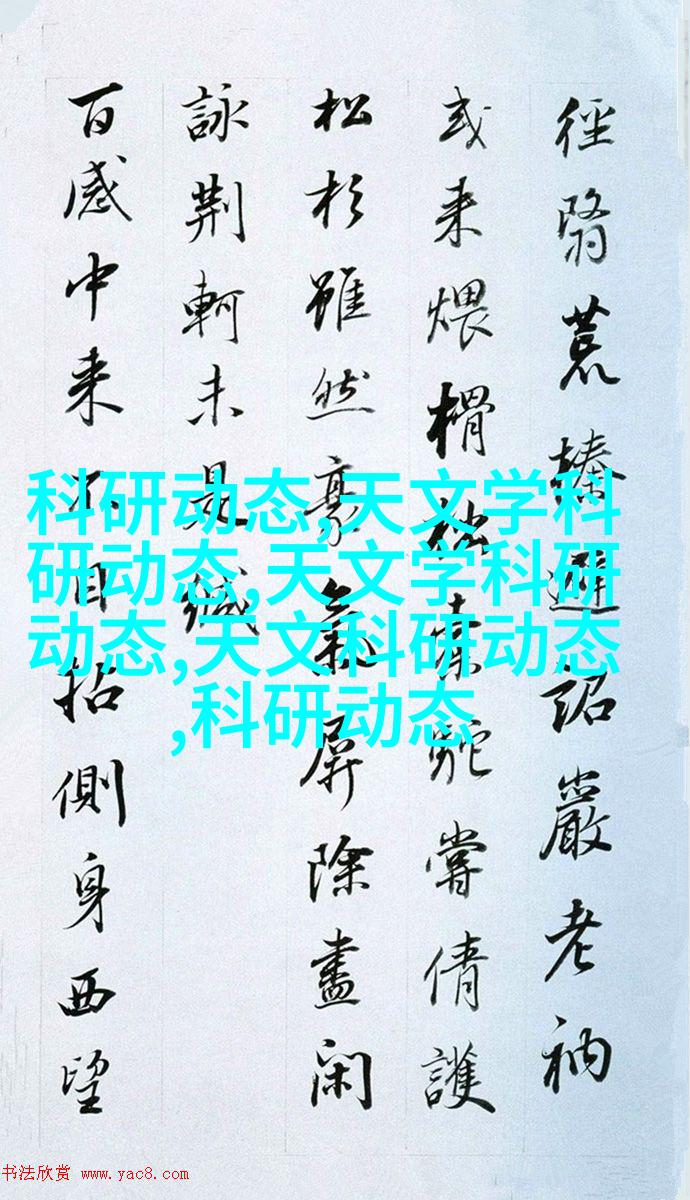 徑翳荒榛絕巖老衲
或来煨榾柮橐駝嘗倩護
松杉雖然豪氣屏除盡閑
詠荆軻未是緘
百感中来不自拈側身西望
科研动态,天文学科
研动态,天文学科研
动态,天文科研动态
,科研动态
书法欣赏 www.yac8.com